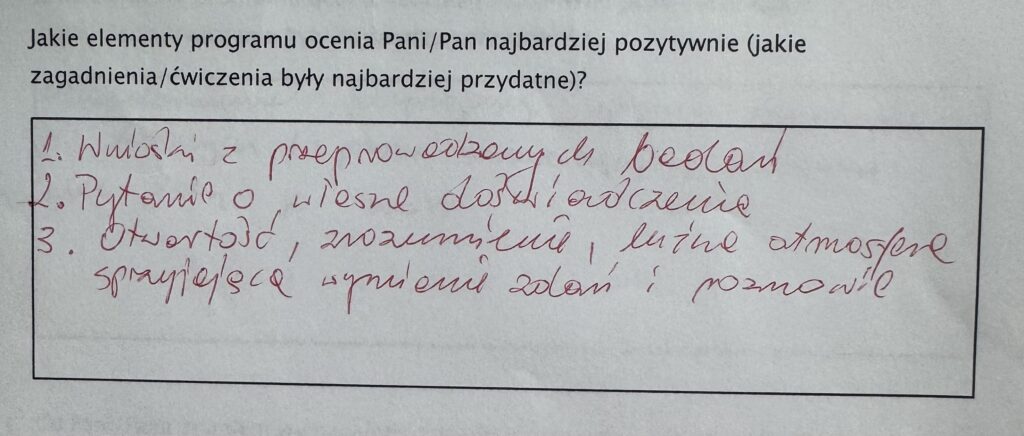 Jakie elementy programu ocenia Pani/Pan najbardziej pozytywnie (jakie
zagadnienia/ćwiczenia były najbardziej przydatne)?
1. Wnioski z przeprowadzonych badań
2. Pytanie o własne doświadczenia
3. Otwartość, zrozumienie, luźna atmosfera
sprzyjająca wymianie zdań i rozmowie